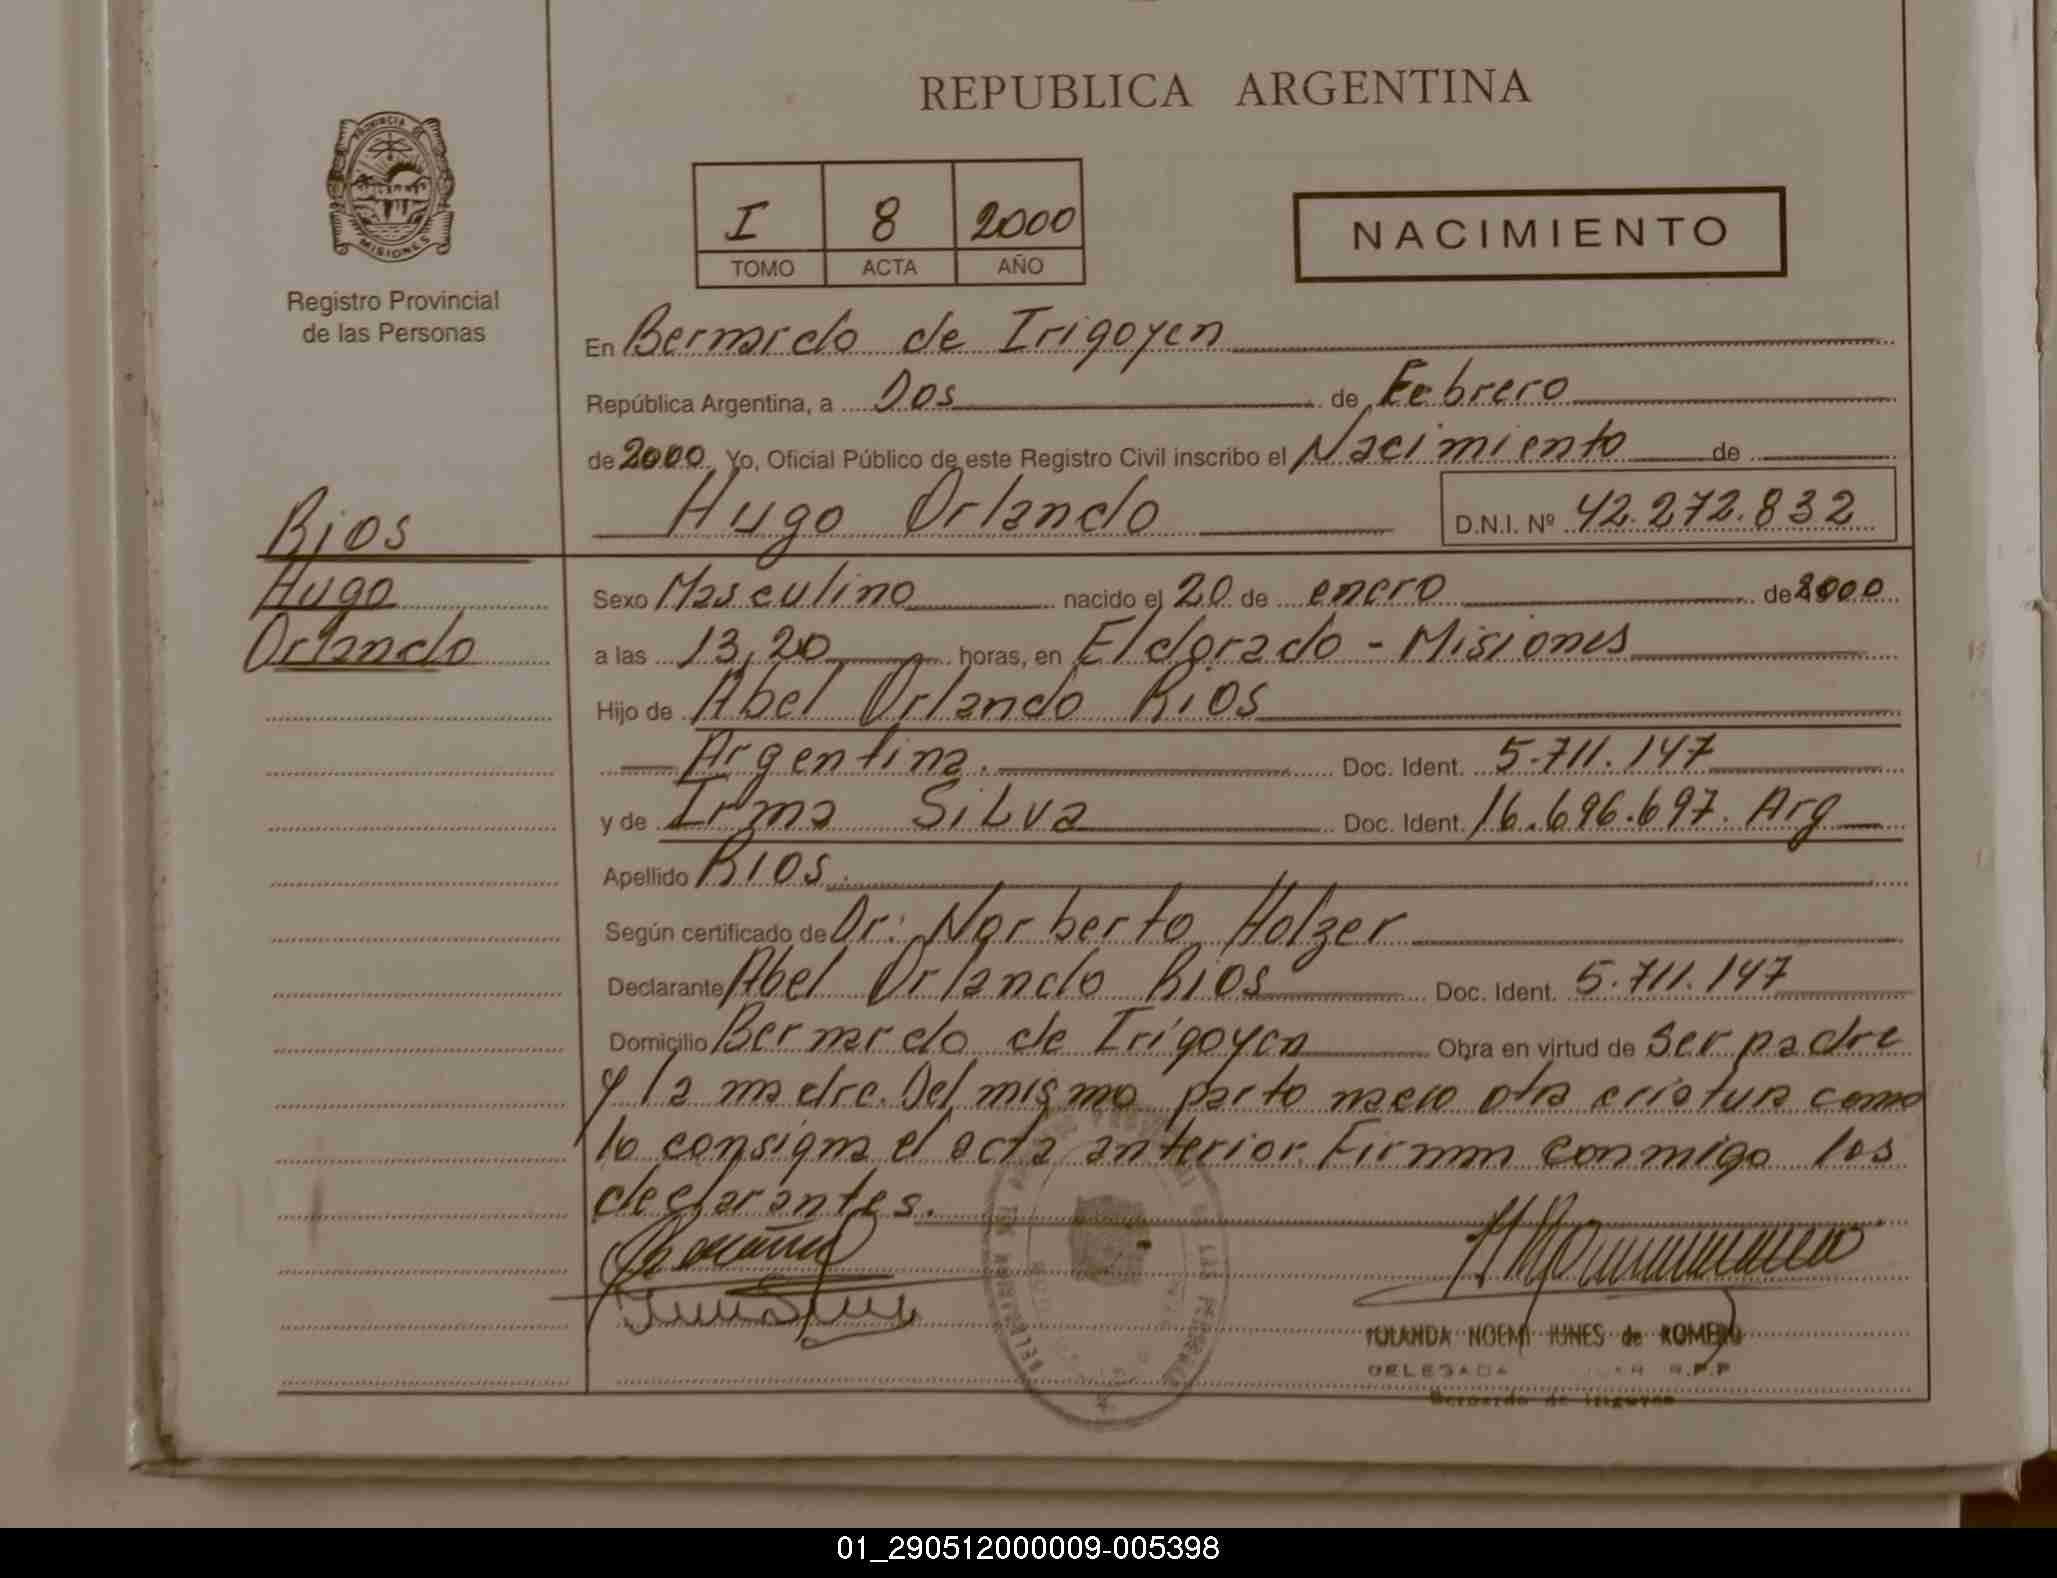 REPUBLICA ARGENTINA
PROVINCIA DE
MISIONES
Registro Provincial
de las Personas
I 8 2000
TOMO ACTA AÑO
NACIMIENTO
En Bernardo de Irigoyen
República Argentina, a Dos de Febrero
de 2000 Yo, Oficial Público de este Registro Civil inscribo el Nacimiento de
Hugo Orlando D.N.I. Nº 42.272.832
Rios
Hugo
Orlando
Sexo Masculino nacido el 20 de enero de 2000
a las 13,20 horas, en Eldorado - Misiones
Hijo de Abel Orlando Rios
Argentina. Doc. Ident. 5.711.147
y de Irma Silva Doc. Ident. 16.696.697. Arg
Apellido RIOS.
Según certificado de Dr: Norberto Holzer
Declarante Abel Orlando Rios Doc. Ident. 5.711.147
Domicilio Bernardo de Irigoyen Obra en virtud de ser padre
y la madre. Del mismo parto nacio otra criatura como
lo consigna el acta anterior. Firman conmigo los
declarantes.
YOLANDA NOEMI de ROMERO
DELEGADA R.P.P
Bernardo de Irigoyen
01_290512000009-005398